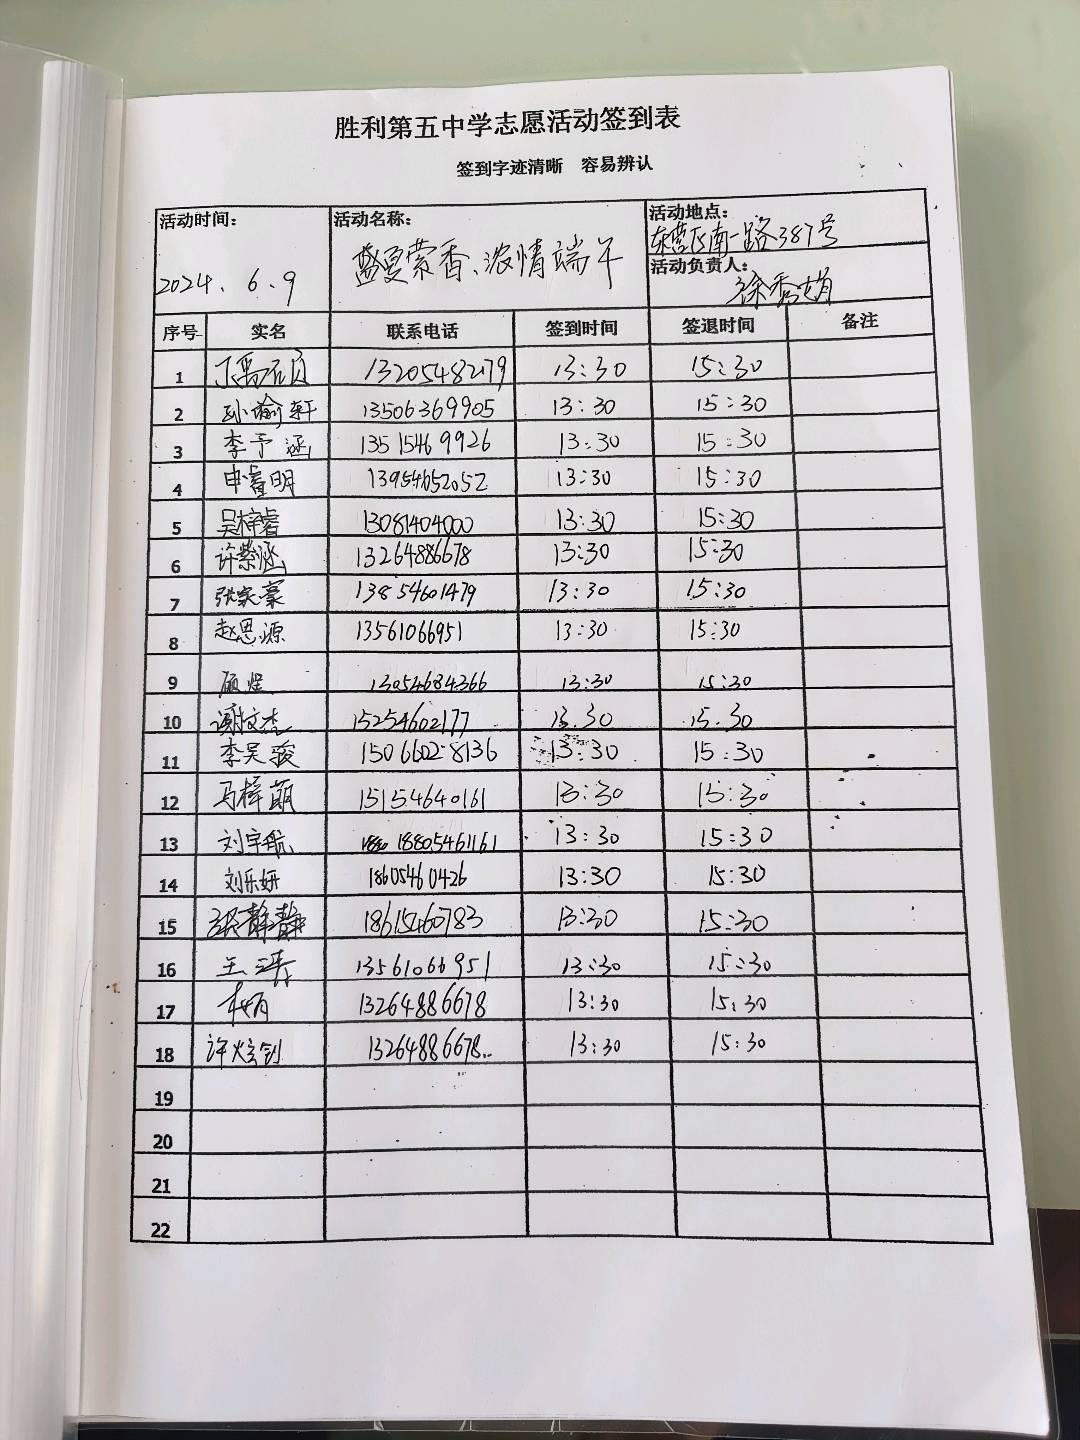 胜利第五中学志愿活动签到表
签到字迹清晰 容易辨认
活动时间: 活动名称: 活动地点:
东营区南一路387号
盛夏萦香、浓情端午
活动负责人:
2024.6.9 徐秀娟
序号 实名 联系电话 签到时间 签退时间 备注
1 丁禹 13205482179 13:30 15:30
2 孙瑜轩 13506369905 13:30 15:30
3 李予涵 13515469926 13:30 15:30
4 申睿明 13954652052 13:30 15:30
5 吴梓睿 13081404000 13:30 15:30
6 许紫涵 13264886678 13:30 15:30
7 张家豪 13854601479 13:30 15:30
8 赵思源 13561066951 13:30 15:30
9 顾煜 13054684366 13:30 15:30
10 谢文杰 15254602177 13.30 15.30
11 李昊骏 15066028136 13:30 15:30
12 马梓萌 15154640161 13:30 15:30
13 刘宇航 18805461161 13:30 15:30
14 刘乐妍 18605460426 13:30 15:30
15 张静静 18615460783 13:30 15:30
16 王涛 13561066951 13:30 15:30
17 13264886678 13:30 15:30
18 许炫剑 13264886678.. 13:30 15:30
19
20
21
22